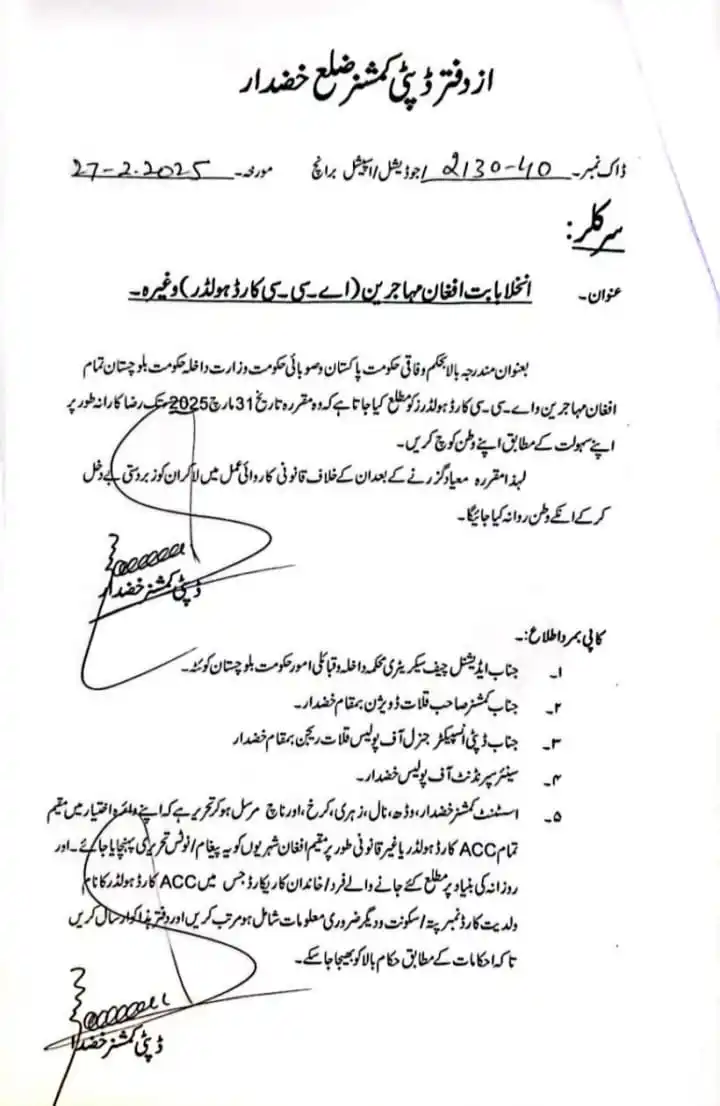 از دفتر ڈپٹی کمشنر ضلع خضدار
ڈاک نمبر۔ 2130-40 /جوڈیشل/اسپیشل برانچ مورخہ۔ 27-2.2025
سرکلر:
عنوان۔ انخلا بابت افغان مہاجرین (اے۔سی۔سی کارڈ ہولڈر) وغیرہ۔
بعنوان مندرجہ بالا بحکم وفاقی حکومت پاکستان و صوبائی حکومت وزارت داخلہ حکومت بلوچستان تمام
افغان مہاجرین و اے۔سی۔سی کارڈ ہولڈرز کو مطلع کیا جاتا ہے کہ وہ مقررہ تاریخ 31 مارچ 2025 تک رضا کارانہ طور پر
اپنے سہولت کے مطابق اپنے وطن کوچ کریں۔
لہذا مقررہ معیاد گزرنے کے بعد ان کے خلاف قانونی کاروائی عمل میں لا کر ان کو زبردستی بے دخل
کر کے انکے وطن روانہ کیا جائیگا۔
ڈپٹی کمشنر خضدار
کاپی بمراد اطلاع:۔
۱۔ جناب ایڈیشنل چیف سیکریٹری محکمہ داخلہ و قبائلی امور حکومت بلوچستان کوئٹہ۔
۲۔ جناب کمشنر صاحب قلات ڈویژن بمقام خضدار۔
۳۔ جناب ڈپٹی انسپیکٹر جنرل آف پولیس قلات ریجن بمقام خضدار
۴۔ سینئر سپرنڈنٹ آف پولیس خضدار۔
۵۔ اسسٹنٹ کمشنر خضدار، وڈھ، نال، زہری، کرخ، اورناچ مرسل ہو کر تحریر ہے کہ اپنے دائرہ اختیار میں مقیم
تمام ACC کارڈ ہولڈر یا غیر قانونی طور پر مقیم افغان شہریوں کو یہ پیغام/نوٹس تحریری پہنچایا جائے۔ اور
روزانہ کی بنیاد پر مطلع کئے جانے والے فرد/خاندان کا ریکارڈ جس میں ACC کارڈ ہولڈر کا نام
ولدیت کارڈ نمبر پتہ/سکونت و دیگر ضروری معلومات شامل ہو مرتب کریں اور دفتر ہذا کو ارسال کریں
تاکہ احکامات کے مطابق حکام بالا کو بھیجا جا سکے۔
ڈپٹی کمشنر خضدار